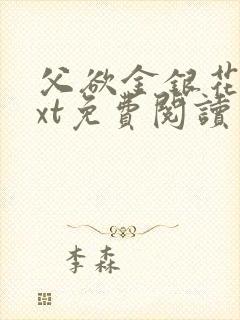 父欲金銀花
xt免費閱讀
李森